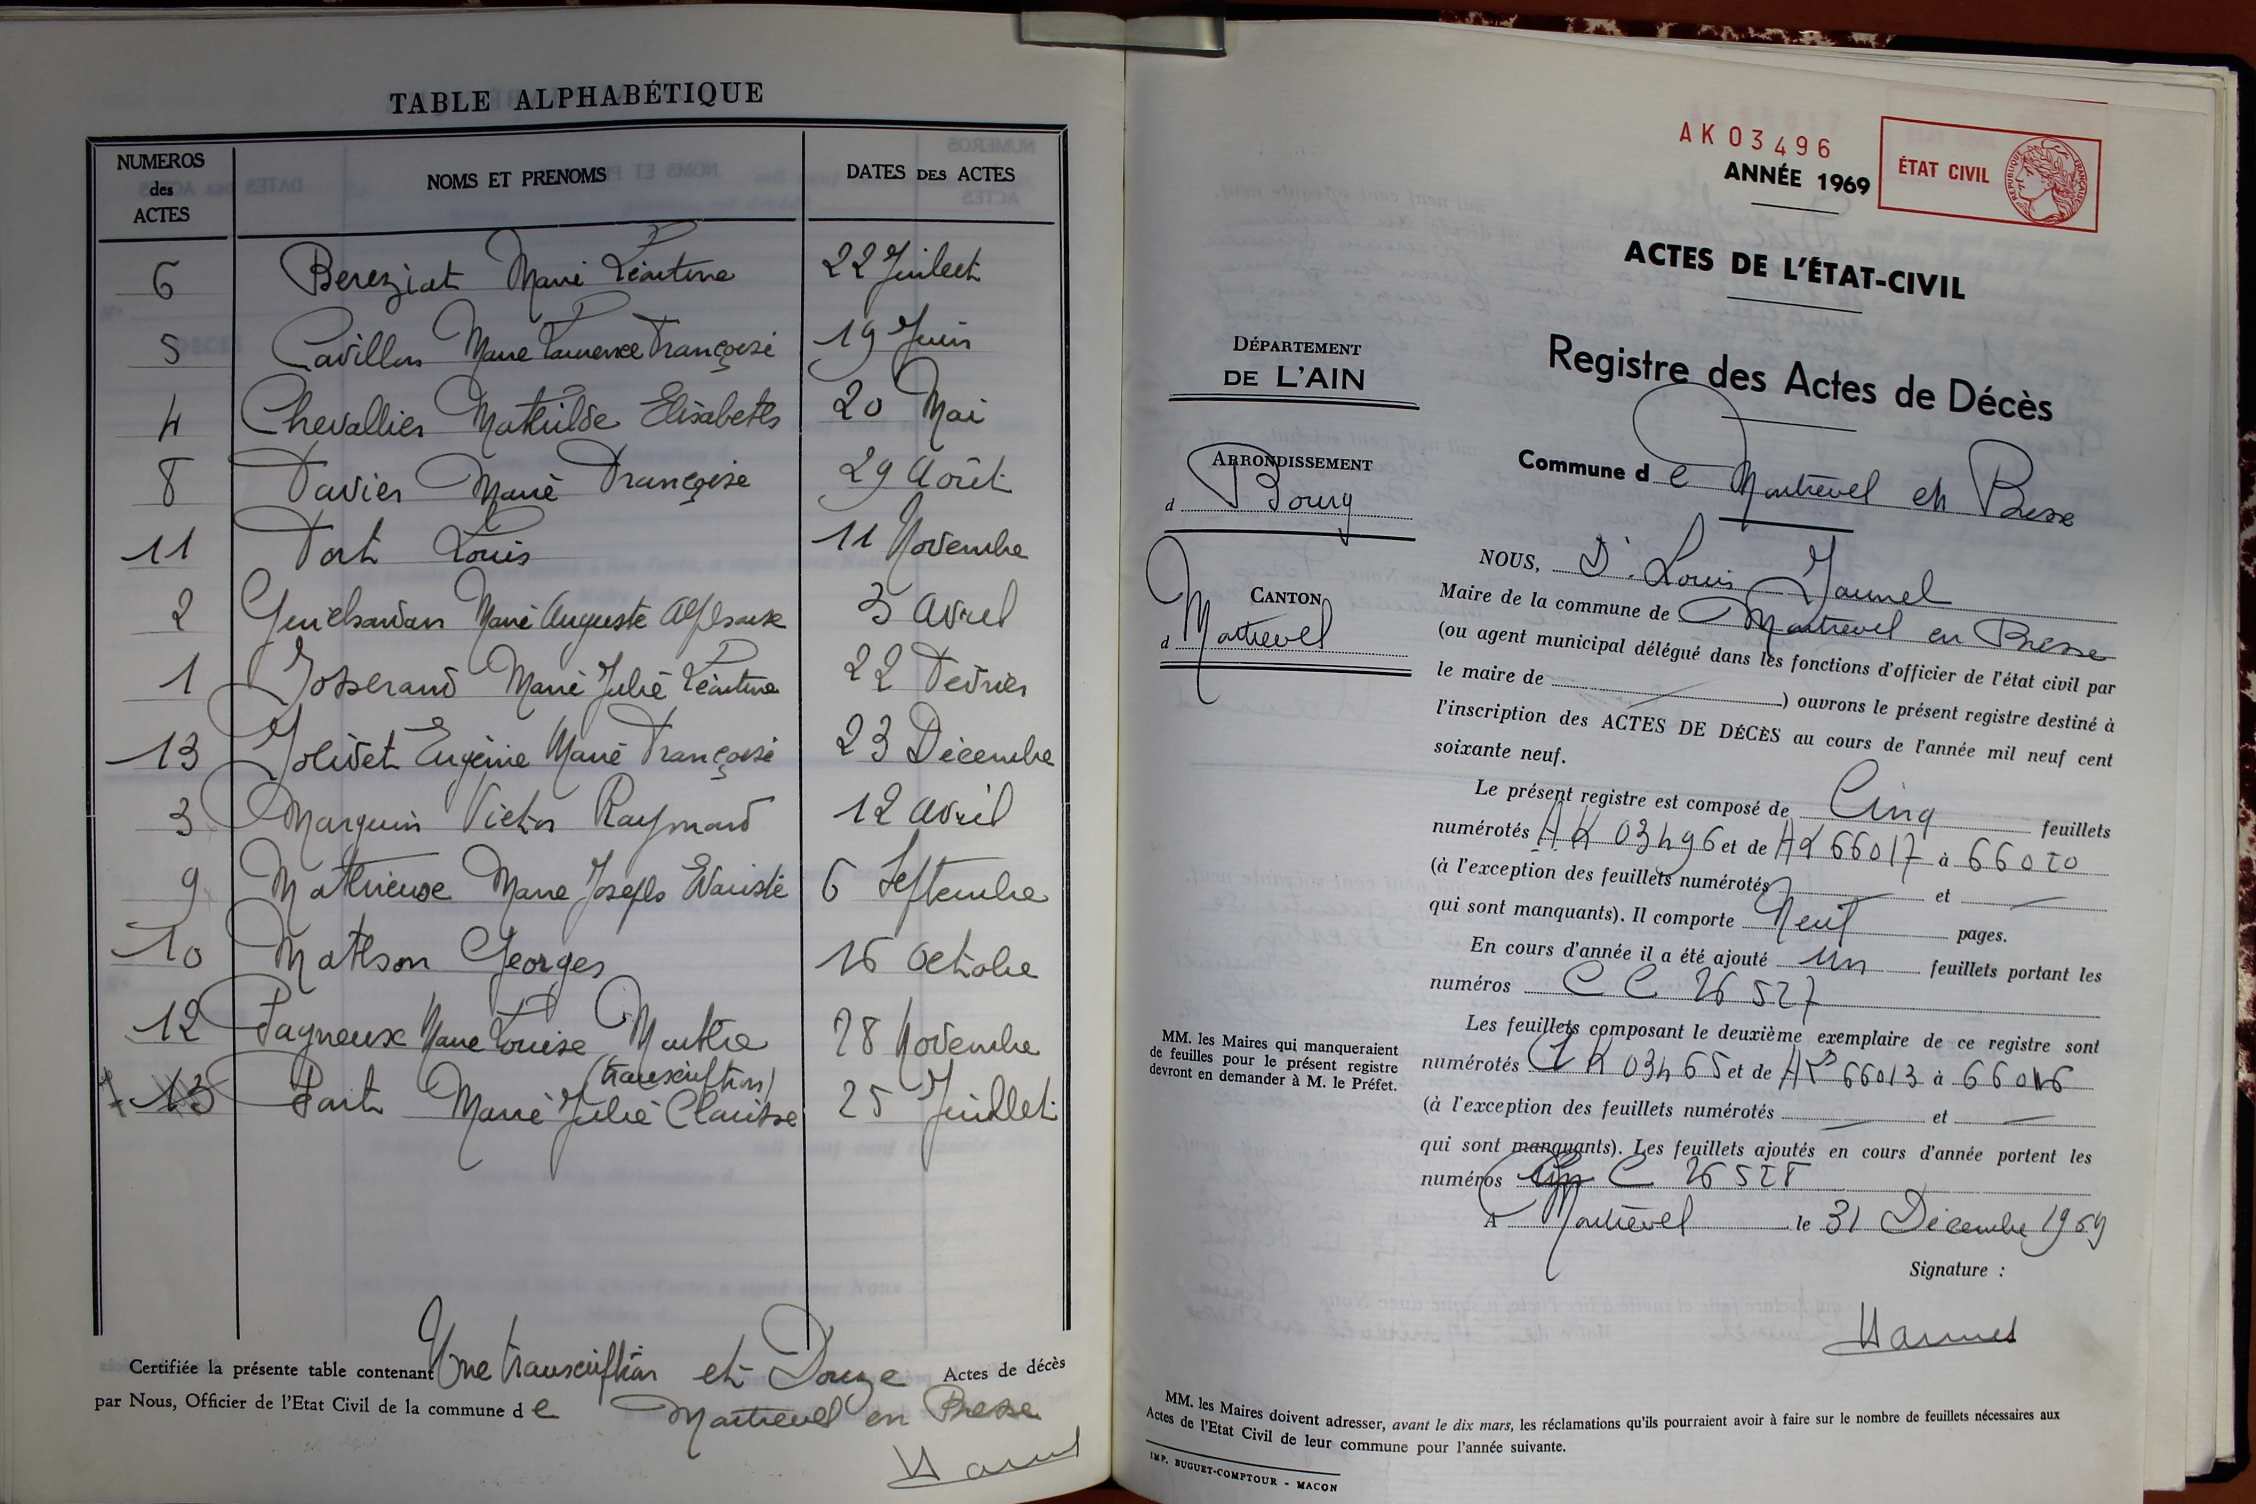 TABLE ALPHABÉTIQUE
NUMEROS des ACTES NOMS ET PRENOMS DATES DES ACTES
6 Bereziat Marie Léontine 22 Juillet
5 Cavillon Marie Laurence Françoise 19 Juin
4 Chevallier Mathilde Elisabeth 20 Mai
8 Favier Marie Françoise 29 Août
11 Fort Louis 11 Novembre
2 Guichardan Marie Auguste Alphonse 3 Avril
1 Josserand Marie Julie Léontine 22 Février
13 Jolivet Eugénie Marie Françoise 23 Décembre
3 Marquin Victor Raymond 12 Avril
9 Mathieux Marie Joseph Evariste 6 Septembre
10 Matson Georges 16 Octobre
12 Pagneux Marie Louise Marthe 28 Novembre
(transcription)
7 13 Marie Julie Clarisse 25 Juillet
Certifiée la présente table contenant Une transcription et Douze Actes de décès
par Nous, Officier de l'Etat Civil de la commune de Montrevel en Bresse
AK 03496
ANNÉE 1969
ÉTAT CIVIL
RÉPUBLIQUE FRANÇAISE
ACTES DE L'ÉTAT-CIVIL
Registre des Actes de Décès
Commune de Montrevel en Bresse
DÉPARTEMENT
DE L'AIN
ARRONDISSEMENT
d Bourg
CANTON
d Montrevel
NOUS, Dr. Louis
Maire de la commune de Montrevel en Bresse
(ou agent municipal délégué dans les fonctions d'officier de l'état civil par
le maire de ) ouvrons le présent registre destiné à
l'inscription des ACTES DE DÉCÈS au cours de l'année mil neuf cent
soixante neuf.
Le présent registre est composé de Cinq feuillets
numérotés AK 03496 et de AK 66017 à 66020
(à l'exception des feuillets numérotés et
qui sont manquants). Il comporte Neuf pages.
En cours d'année il a été ajouté un feuillets portant les
numéros CC 26527
Les feuillets composant le deuxième exemplaire de ce registre sont
numérotés AK 03465 et de AK 66013 à 66016
(à l'exception des feuillets numérotés et
qui sont manquants). Les feuillets ajoutés en cours d'année portent les
numéros C 26528
A Montrevel le 31 Décembre 1969
Signature :
MM. les Maires qui manqueraient
de feuilles pour le présent registre
devront en demander à M. le Préfet.
MM. les Maires doivent adresser, avant le dix mars, les réclamations qu'ils pourraient avoir à faire sur le nombre de feuillets nécessaires aux
Actes de l'Etat Civil de leur commune pour l'année suivante.
IMP. BUGUET-COMPTOUR - MACON